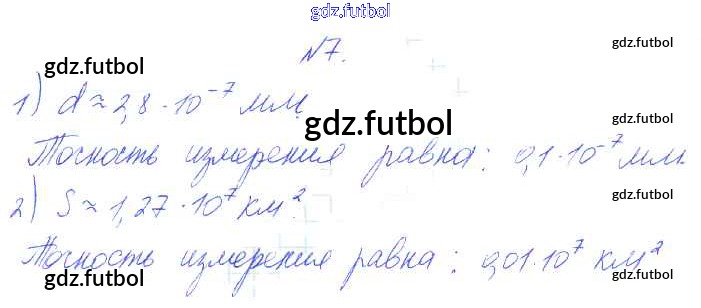 gdz.futbol
№7.
gdz.futbol
gdz.futbol
1) d ≈ 2,8 · 10⁻⁷ мм.
gdz.futbol
gdz.futbol
Точность измерения равна: 0,1 · 10⁻⁷ мм.
2) S ≈ 1,27 · 10⁷ км².
gdz.futbol
Точность измерения равна: 0,01 · 10⁷ км²
gdz.futbol
gdz.futbol